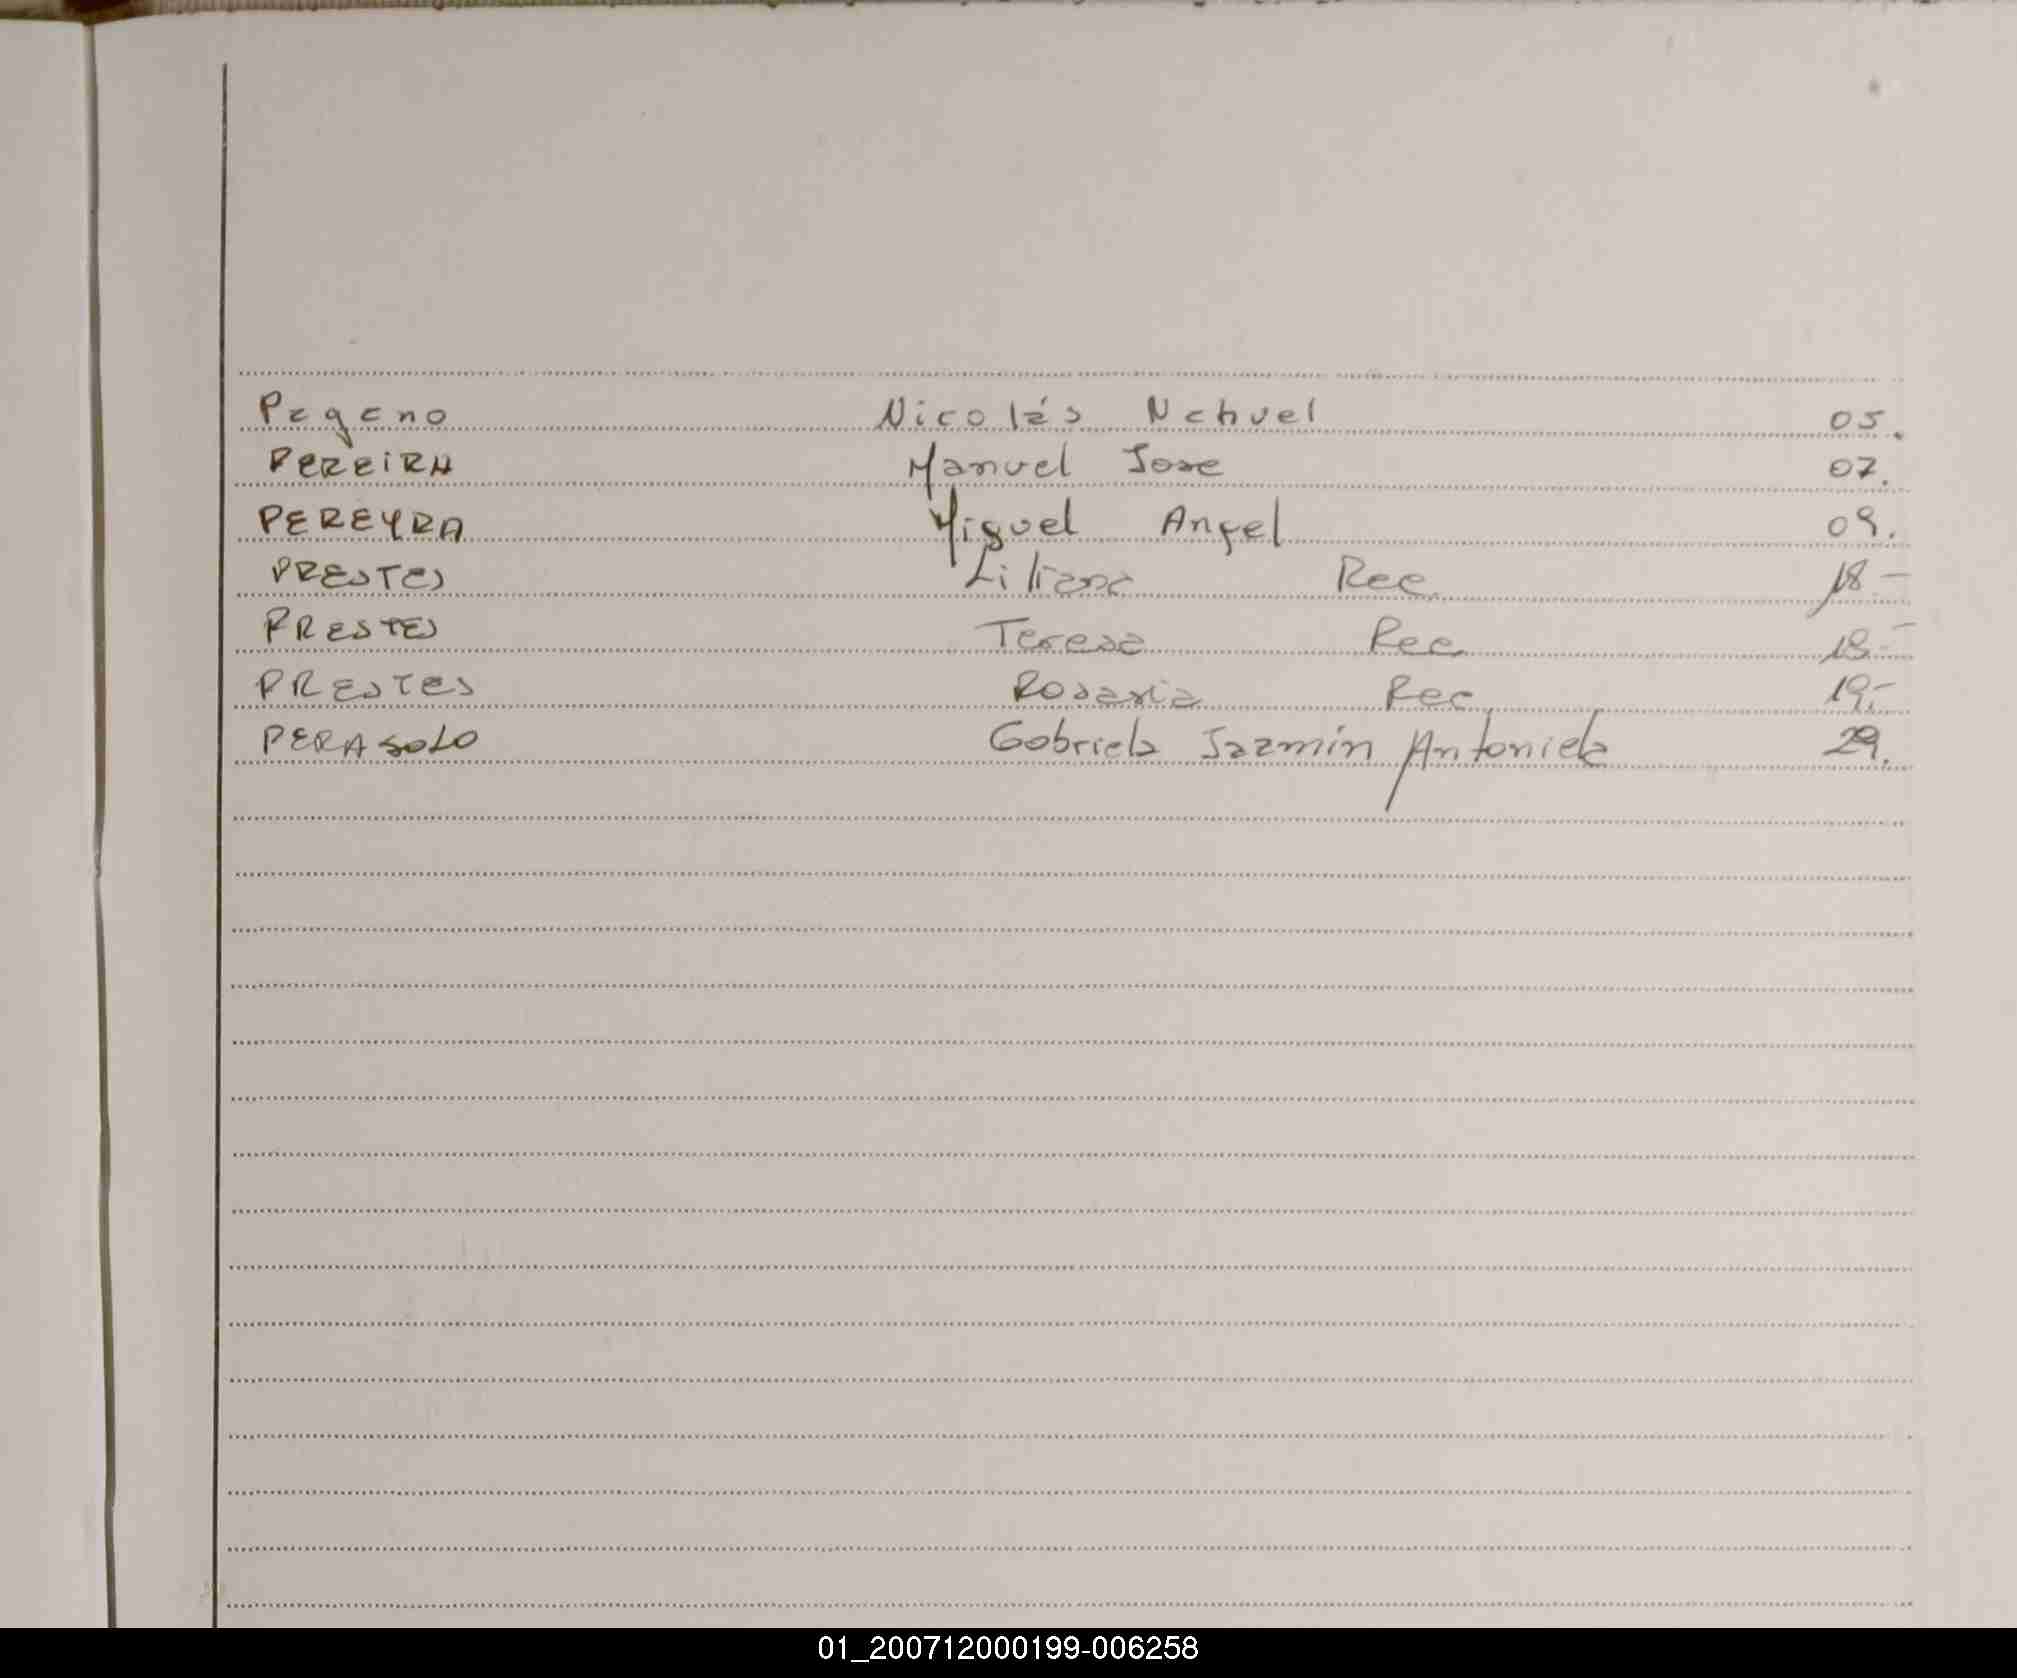 Pegeno Nicolás Nehuel 05.
PEREIRA Manuel Jose 07.
PEREYRA Miguel Angel 09.
PRESTES Liliana Rec 18.-
PRESTES Teresa Rec 18.-
PRESTES Rosaria Rec 19.-
PERASOLO Gabriela Jazmín Antoniela 29.
01_200712000199-006258